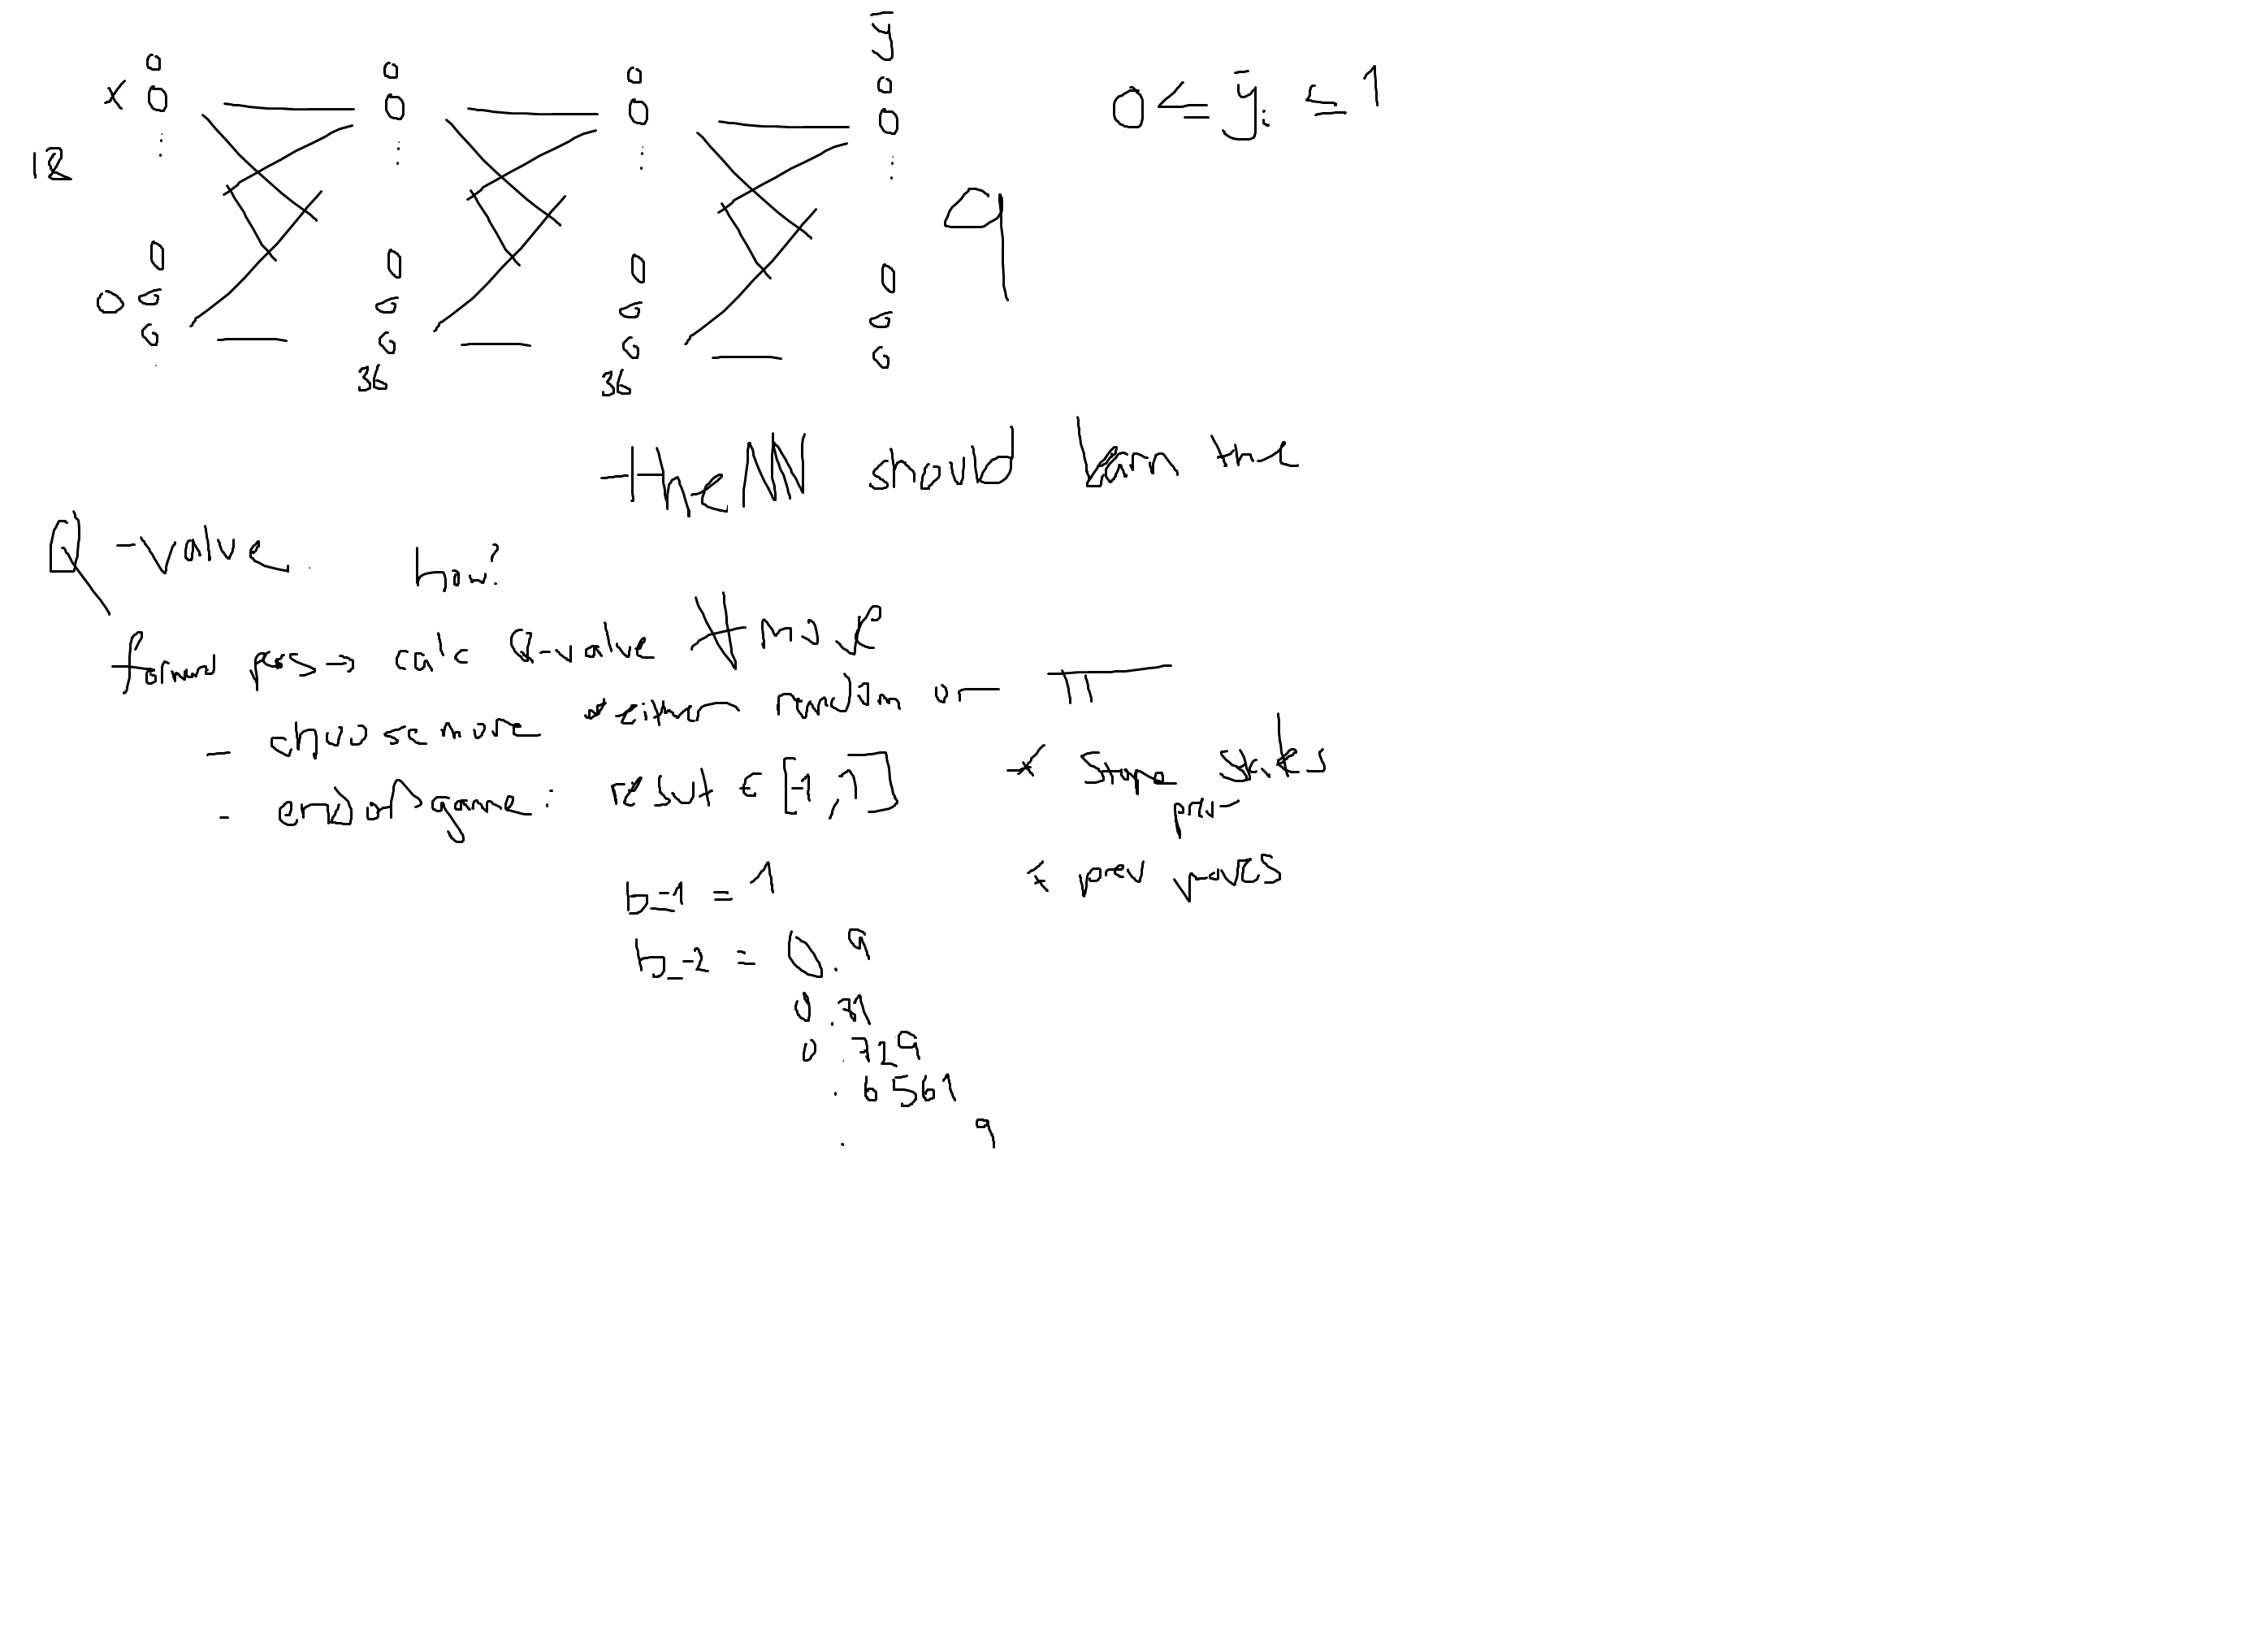 ȳ
x
0 ≤ ȳᵢ ≤ 1
18
9
O
36 36
the NN should learn the
Q-value. how?
forward pass → calc Q-value ∀ move
- choose move * either random or π
- end of game: result ∈ [-1, 1] * store prev states
* prev moves
b_-1 = 1
b_-2 = 0.9
0.81
0.729
.6561
. 9